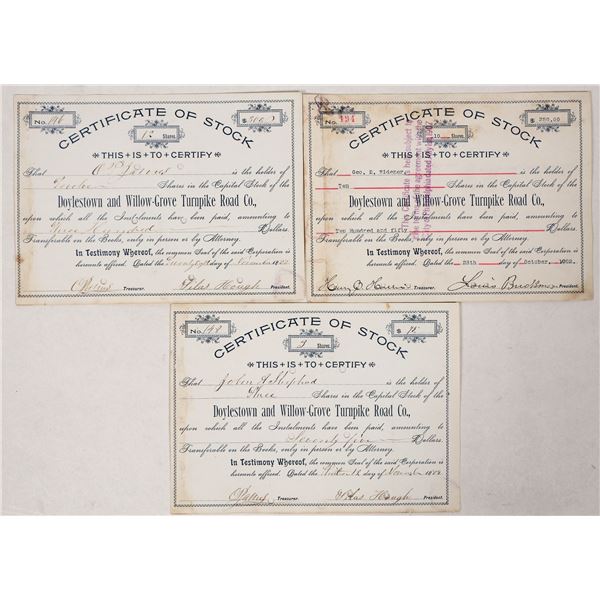 No. 146
$300.00
CERTIFICATE OF STOCK
12 Shares.
THIS IS TO CERTIFY
That is the holder of
Twelve Shares in the Capital Stock of the
Doylestown and Willow-Grove Turnpike Road Co.,
upon which all the Instalments have been paid, amounting to
Three Hundred Dollars.
Transferable on the Books, only in person or by Attorney.
In Testimony Whereof, the common Seal of the said Corporation is
hereunto affixed. Dated the day of November
Treasurer. Silas Hough President.
No. 194
$ 250.00
CERTIFICATE OF STOCK
10 Shares.
THIS IS TO CERTIFY
That Geo. D. Widener, is the holder of
Ten Shares in the Capital Stock of the
Doylestown and Willow-Grove Turnpike Road Co.,
upon which all the Instalments have been paid, amounting to
Two Hundred and Fifty Dollars.
Transferable on the Books, only in person or by Attorney.
In Testimony Whereof, the common Seal of the said Corporation is
hereunto affixed. Dated the 28th day of October, 1902.
Treasurer. Louis President.
This Certificate is held subject to
No. 148
$ 75
CERTIFICATE OF STOCK
3 Shares.
THIS IS TO CERTIFY
That John is the holder of
Three Shares in the Capital Stock of the
Doylestown and Willow-Grove Turnpike Road Co.,
upon which all the Instalments have been paid, amounting to
Seventy Five Dollars.
Transferable on the Books, only in person or by Attorney.
In Testimony Whereof, the common Seal of the said Corporation is
hereunto affixed. Dated the day of November
Treasurer. Silas Hough President.